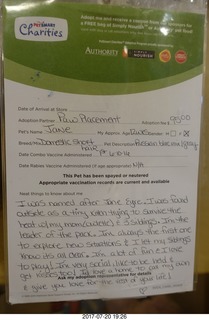 Adopt me and receive a
a FREE bag of Simply Nourish
PETSMART
Charities
AUTHORITY SIMPLY NOURISH
Date of Arrival at Store
Adoption Partner Paw Placement Adoption fee $ 95.00
Pet's Name Jane My Approx. Age
Breed/Mix Domestic Short hair Pet Description
Date Combo Vaccine Administered
Date Rabies Vaccine Administered (if age appropriate) N/A
This Pet has been spayed or neutered
Appropriate vaccination records are current and available
Neat things to know about me
I was named after Jane Eyre. I was found
outside as a tiny kitten trying to survive the
heat w/ my mom & 3 siblings. I'm the
leader of the pack. I'm always the first one
to explore new situations & I let my siblings
know its all okay. I'm a lot of fun & love
to play! I'm very social, like to be held &
get kisses too! I'd love a home to call my own
Ask my adoption representative for details
& give you love for the rest of your life!
2017-07-20 19:26